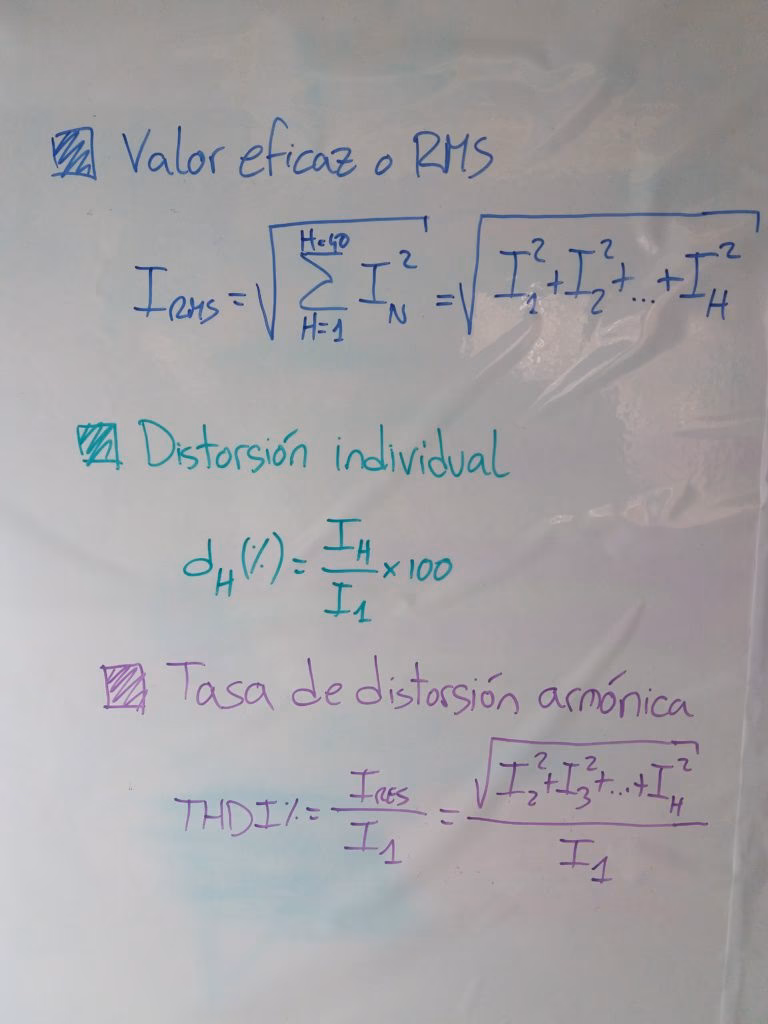 Valor eficaz o RMS
I_RMS = √(∑_{H=1}^{H=40} I_N^2) = √(I_1^2 + I_2^2 + ... + I_H^2)
Distorsión individual
d_H (%) = I_H / I_1 × 100
Tasa de distorsión armónica
THDI% = I_RES / I_1 = √(I_2^2 + I_3^2 + ... + I_H^2) / I_1